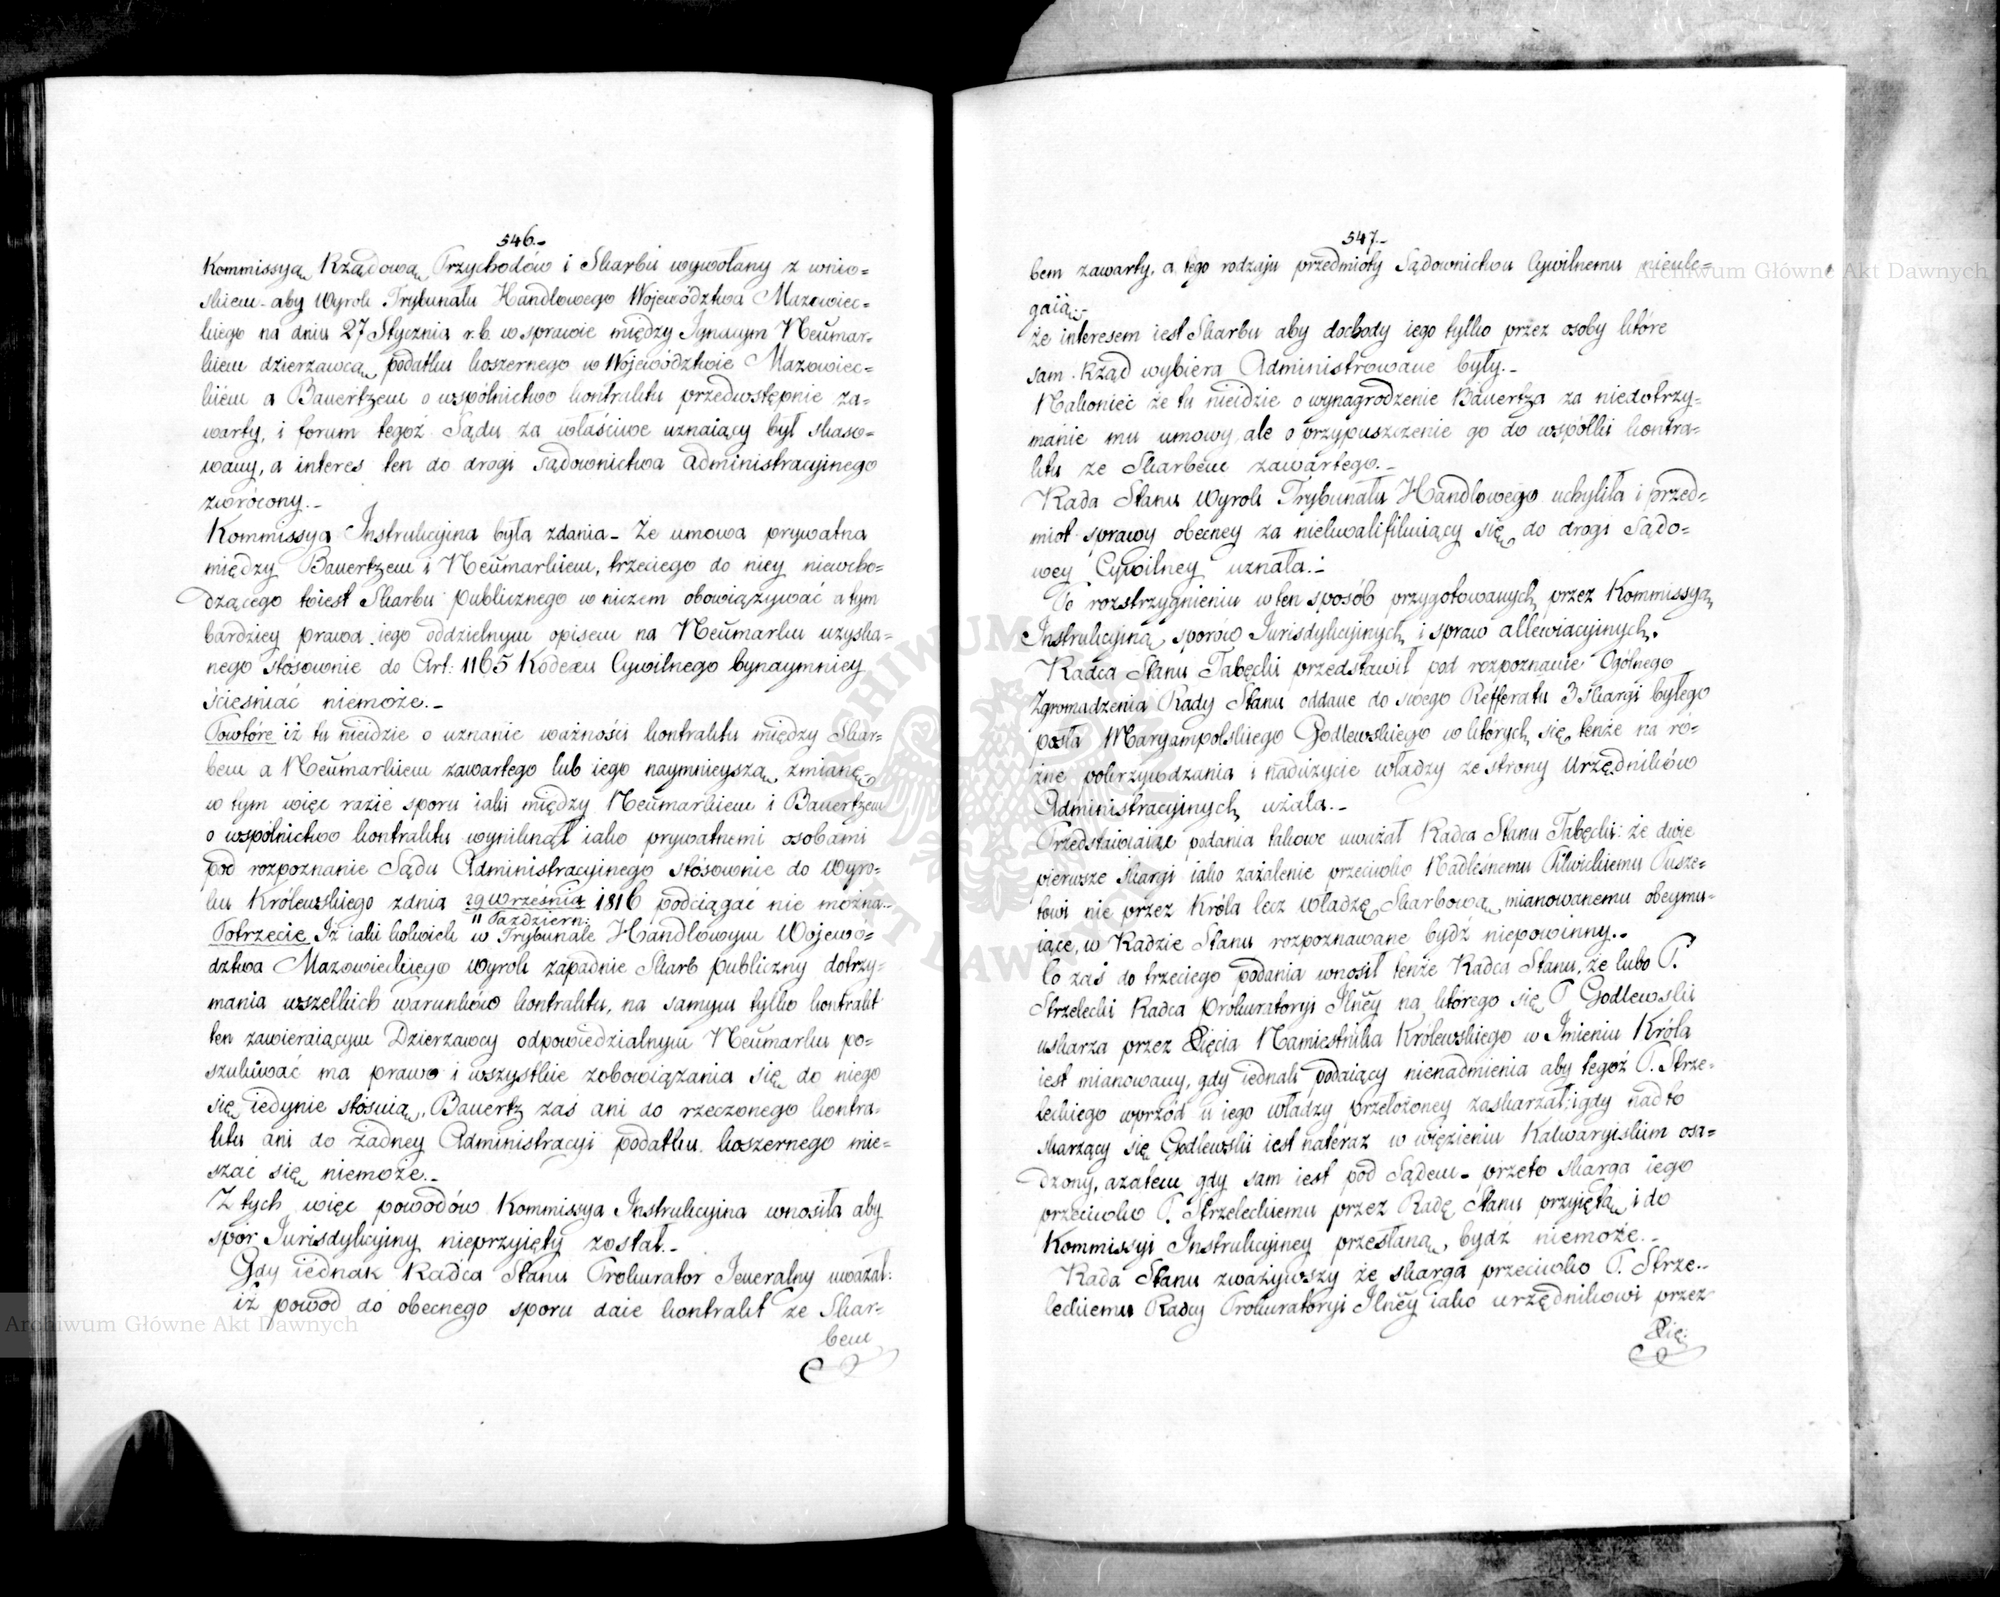 546.-
Kommissyą Rządową Przychodów i Skarbu wywołany z wnio=
skiem - aby Wyrok Trybunału Handlowego Województwa Mazowiec=
kiego na dniu 27 Stycznia r.b. w sprawie między Ignacym Neümar=
kiem dzierzawcą podatku koszernego w Województwie Mazowiec=
kiém a Bauertzem o wspólnictwo kontraktu przedwstępnie za=
warty, i forum tegoż Sądu za właściwe uznaiący był skaso=
wany, a interes ten do drogi sądownictwa administracyjnego
zwrócony.-
Kommissya Instrukcyjna była zdania - Że umowa prywatna
między Bauertzem i Neümarkiem, trzeciego do niey niewcho=
dzącego toiest Skarbu publicznego w niczem obowiązywać a tym
bardziey prawa iego oddzielnym opisem na Neümarku uzyska=
nego stósownie do Art: 1165 Kodexu Cywilnego bynaymniey
ścieśniać niemoże.-
Powtóre iż tu nieidzie o uznanie ważności kontraktu między Skar=
bem a Neümarkiem zawartego lub iego naymnieyszą zmianę
w tym więc razie sporu iaki między Neümarkiem i Bauertzem
o wspólnictwo kontraktu wyniknął iako prywatnemi osobami
pod rozpoznanie Sądu Administracyinego stósownie do Wyro=
ku Królewskiego zdnia 29 września 1816 podciągać nie można.-
11 Październ:
Potrzecie Iż iaki kolwiek w Trybunale Handlowym Wojewó=
dztwa Mazowieckiego Wyrok zapadnie Skarb publiczny dotrzy=
mania wszelkich warunków kontraktu, na samym tylko kontrakt
ten zawieraiącym Dzierzawcy odpowiedzialnym Neümarku po=
szukiwać ma prawo i wszystkie zobowiązania się do niego
się iedynie stósuią, Bauertz zaś ani do rzeczonego kontra=
ktu ani do żadney Administracyi podatku koszernego mie=
szać się niemoże.-
Z tych więc powodów Kommissya Instrukcyjna wnosiła aby
spór Jurisdykcyjny nieprzyięty został.-
Gdy iednak Radca Stanu Prokurator Jeneralny uważał:
iż powód do obecnego sporu daie kontrakt ze Skar=
bem
547.-
bem zawarty, a tego rodzaju przedmioty Sądownictwu Cywilnemu nieule=
gaią.-
że interesem iest Skarbu aby dochody iego tylko przez osoby które
sam Rząd wybiera Administrowane były.-
Nakoniec że tu nieidzie o wynagrodzenie Bauertza za niedotrzy=
manie mu umowy, ale o przypuszczenie go do wspólki kontra=
ktu ze Skarbem zawartego.-
Rada Stanu Wyrok Trybunału Handlowego uchyliła i przed=
miot sprawy obecney za niekwalifikuiący się do drogi Sądo=
wey Cywilney uznała.-
Po rozstrzygnieniu w ten sposób przygotowanych przez Kommissyą
Instrukcyiną sporów Jurisdykcyjnych i spraw allewiacyjnych.
Radca Stanu Tabęcki przedstawił pod rozpoznanie Ogólnego
Zgromadzenia Rady Stanu oddane do swego Refferatu 3 Skargi byłego
posła Maryampolskiego Godlewskiego w których się tenże na ró=
żne pokrzywdzania i nadużycie władzy ze strony Urzędników
Administracyjnych użala.-
Przedstawiaiąc podania takowe uważał Radca Stanu Tabęcki: że dwie
pierwsze skargi iako zażalenie przeciwko Nadleśnemu Pilwickiemu Pusze=
towi nie przez Króla lecz władzę Skarbową mianowanemu obeymu=
iące, w Radzie Stanu rozpoznawane bydź niepowinny.-
Co zaś do trzeciego podania wnosił tenże Radca Stanu, że lubo P.
Strzelecki Radca Prokuratoryi Jlney na którego się P Godlewski
uskarza przez Xięcia Namiestnika Królewskiego w Imieniu Króla
iest mianowany, gdy iednak podaiący nienadmienia aby tegoż P. Strze=
leckiego wprzód u iego władzy przełożoney zaskarzał; i gdy nadto
skarzący się Godlewski iest nateraz w więzieniu Kalwaryiskim osa=
dzony, azatem gdy sam iest pod Sądem - przeto skarga iego
przeciwko P. Strzeleckiemu przez Radę Stanu przyiętą i do
Kommissyi Instrukcyiney przesłaną, bydź niemoże.-
Rada Stanu zważywszy że skarga przeciwko P. Strze.-
leckiemu Radcy Prokuratoryi Jlney iako urzędnikowi przez
Xię:
Archiwum Główne Akt Dawnych
Archiwum Główne Akt Dawnych